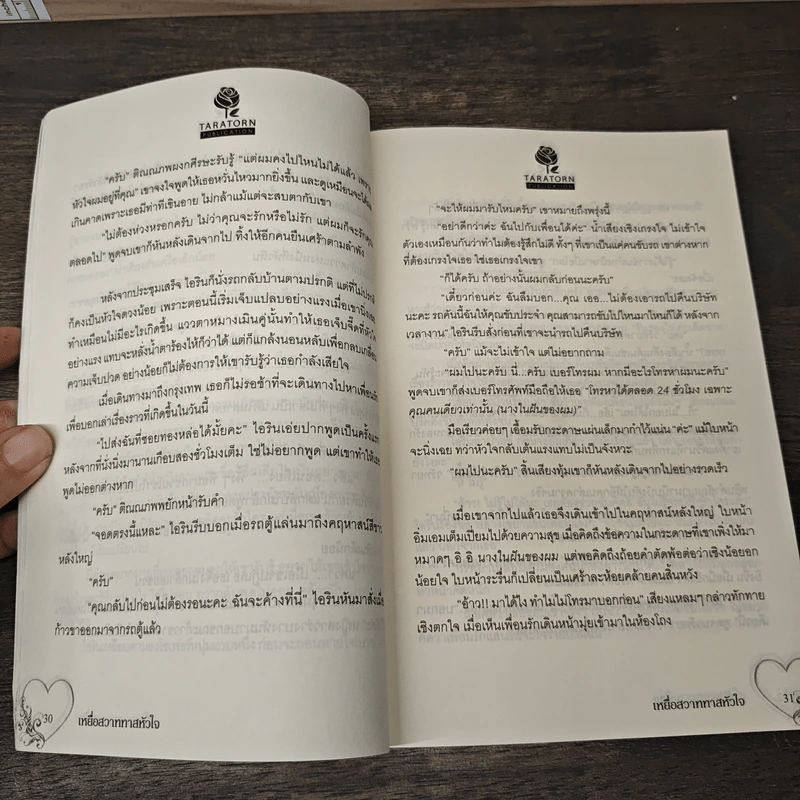 TARATORN
PUBLICATION
"ครับ" ติณณภพผงกศีรษะรับรู้ "แต่ผมคงไปไหนไม่ได้แล้ว เพราะ
หัวใจผมอยู่ที่คุณ" เขาจงใจพูดให้เธอหวั่นไหวมากยิ่งขึ้น และดูเหมือนจะได้ผล
เกินคาดเพราะเธอมีท่าทีเขินอาย ไม่กล้าแม้แต่จะสบตากับเขา
"ไม่ต้องห่วงหรอกครับ ไม่ว่าคุณจะรักหรือไม่รัก แต่ผมก็จะรักคุณ
ตลอดไป" พูดจบเขาก็หันหลังเดินจากไป ทิ้งให้อีกคนยืนเศร้าตามลำพัง
หลังจากประชุมเสร็จ ไอรินก็นั่งรถกลับบ้านตามปรกติ แต่ที่ไม่ปรกติ
ก็คงเป็นหัวใจดวงน้อย เพราะตอนนี้เริ่มเจ็บแปลบอย่างแรงเมื่อเขานิ่งเฉย
ทำเหมือนไม่มีอะไรเกิดขึ้น แววตาหมางเมินคู่นั้นทำให้เธอเจ็บจี๊ดที่หัวใจ
อย่างแรง แทบจะหลั่งน้ำตาร้องไห้ก็ว่าได้ แต่ก็แกล้งนอนหลับเพื่อกลบเกลื่อน
ความเจ็บปวด อย่างน้อยก็ไม่ต้องการให้เขารับรู้ว่าเธอกำลังเสียใจ
เมื่อเดินทางมาถึงกรุงเทพ เธอก็ไม่รอช้าที่จะเดินทางไปหาเพื่อนรัก
เพื่อบอกเล่าเรื่องราวที่เกิดขึ้นในวันนี้
"ไปส่งฉันที่ซอยทองหล่อได้มั้ยคะ" ไอรินเอ่ยปากพูดเป็นครั้งแรก
หลังจากที่นั่งนิ่งมานานเกือบสองชั่วโมงเต็ม ใช่ไม่อยากพูด แต่เขาทำให้เธอ
พูดไม่ออกต่างหาก
"ครับ" ติณณภพพยักหน้ารับคำ
"จอดตรงนี้แหละ" ไอรินรีบบอกเมื่อรถตู้แล่นมาถึงคฤหาสน์สีขาว
หลังใหญ่
"ครับ"
"คุณกลับไปก่อนไม่ต้องรอนะคะ ฉันจะค้างที่นี่" ไอรินหันมาสั่งเมื่อ
ก้าวขาออกมาจากรถตู้แล้ว
30 เหยื่อสวาททาสหัวใจ
TARATORN
PUBLICATION
"จะให้ผมมารับไหมครับ" เขาหมายถึงพรุ่งนี้
"อย่าดีกว่าค่ะ ฉันไปกับเพื่อนได้ค่ะ" น้ำเสียงเชิงเกรงใจ ไม่เข้าใจ
ตัวเองเหมือนกันว่าทำไมต้องรู้สึกไม่ดี ทั้งๆ ที่เขาเป็นแค่คนขับรถ เขาต่างหาก
ที่ต้องเกรงใจเธอ ใช่เธอเกรงใจเขา
"ก็ได้ครับ ถ้าอย่างนั้นผมกลับก่อนนะครับ"
"เดี๋ยวก่อนค่ะ ฉันลืมบอก...คุณ เออ...ไม่ต้องเอารถไปคืนบริษัท
นะคะ รถคันนี้ฉันให้คุณขับประจำ คุณสามารถขับไปไหนมาไหนก็ได้ หลังจาก
เวลางาน" ไอรินรีบสั่งก่อนที่เขาจะนำรถไปคืนบริษัท
"ครับ" แม้จะไม่เข้าใจ แต่ไม่อยากถาม
"ผมไปนะครับ นี่...ครับ เบอร์โทรผม หากมีอะไรโทรหาผมนะครับ"
พูดจบเขาก็ส่งเบอร์โทรศัพท์มือถือให้เธอ "โทรหาได้ตลอด 24 ชั่วโมง เฉพาะ
คุณคนเดียวเท่านั้น (นางในฝันของผม)"
มือเรียวค่อยๆ เอื้อมรับกระดาษแผ่นเล็กมากำไว้แน่น "ค่ะ" แม้ใบหน้า
จะนิ่งเฉย ทว่าหัวใจกลับเต้นแรงแทบไม่เป็นจังหวะ
"ผมไปนะครับ" สิ้นเสียงทุ้มเขาก็หันหลังเดินจากไปอย่างรวดเร็ว
เมื่อเขาจากไปแล้วเธอจึงเดินเข้าไปในคฤหาสน์หลังใหญ่ ใบหน้า
อิ่มเอมเต็มเปี่ยมไปด้วยความสุข เมื่อคิดถึงข้อความในกระดาษที่เขาเพิ่งให้มา
หมาดๆ อิ อิ นางในฝันของผม แต่พอคิดถึงถ้อยคำตัดพ้อต่อว่าเชิงน้อยอก
น้อยใจ ใบหน้าระรื่นก็เปลี่ยนเป็นเศร้าละห้อยคล้ายคนสิ้นหวัง
"อ้าว!! มาได้ไง ทำไมไม่โทรมาบอกก่อน" เสียงแหลมๆ กล่าวทักทาย
เชิงตกใจ เมื่อเห็นเพื่อนรักเดินหน้ามุ่ยเข้ามาในห้องโถง
เหยื่อสวาททาสหัวใจ 31